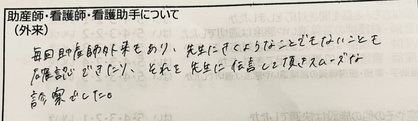 助産師・看護師・看護助手について
(外来)
毎回助産師外来もあり、先生にきくようなことでもないことも
確認できたり、それを先生に伝言して頂きスムーズな
診察でした。